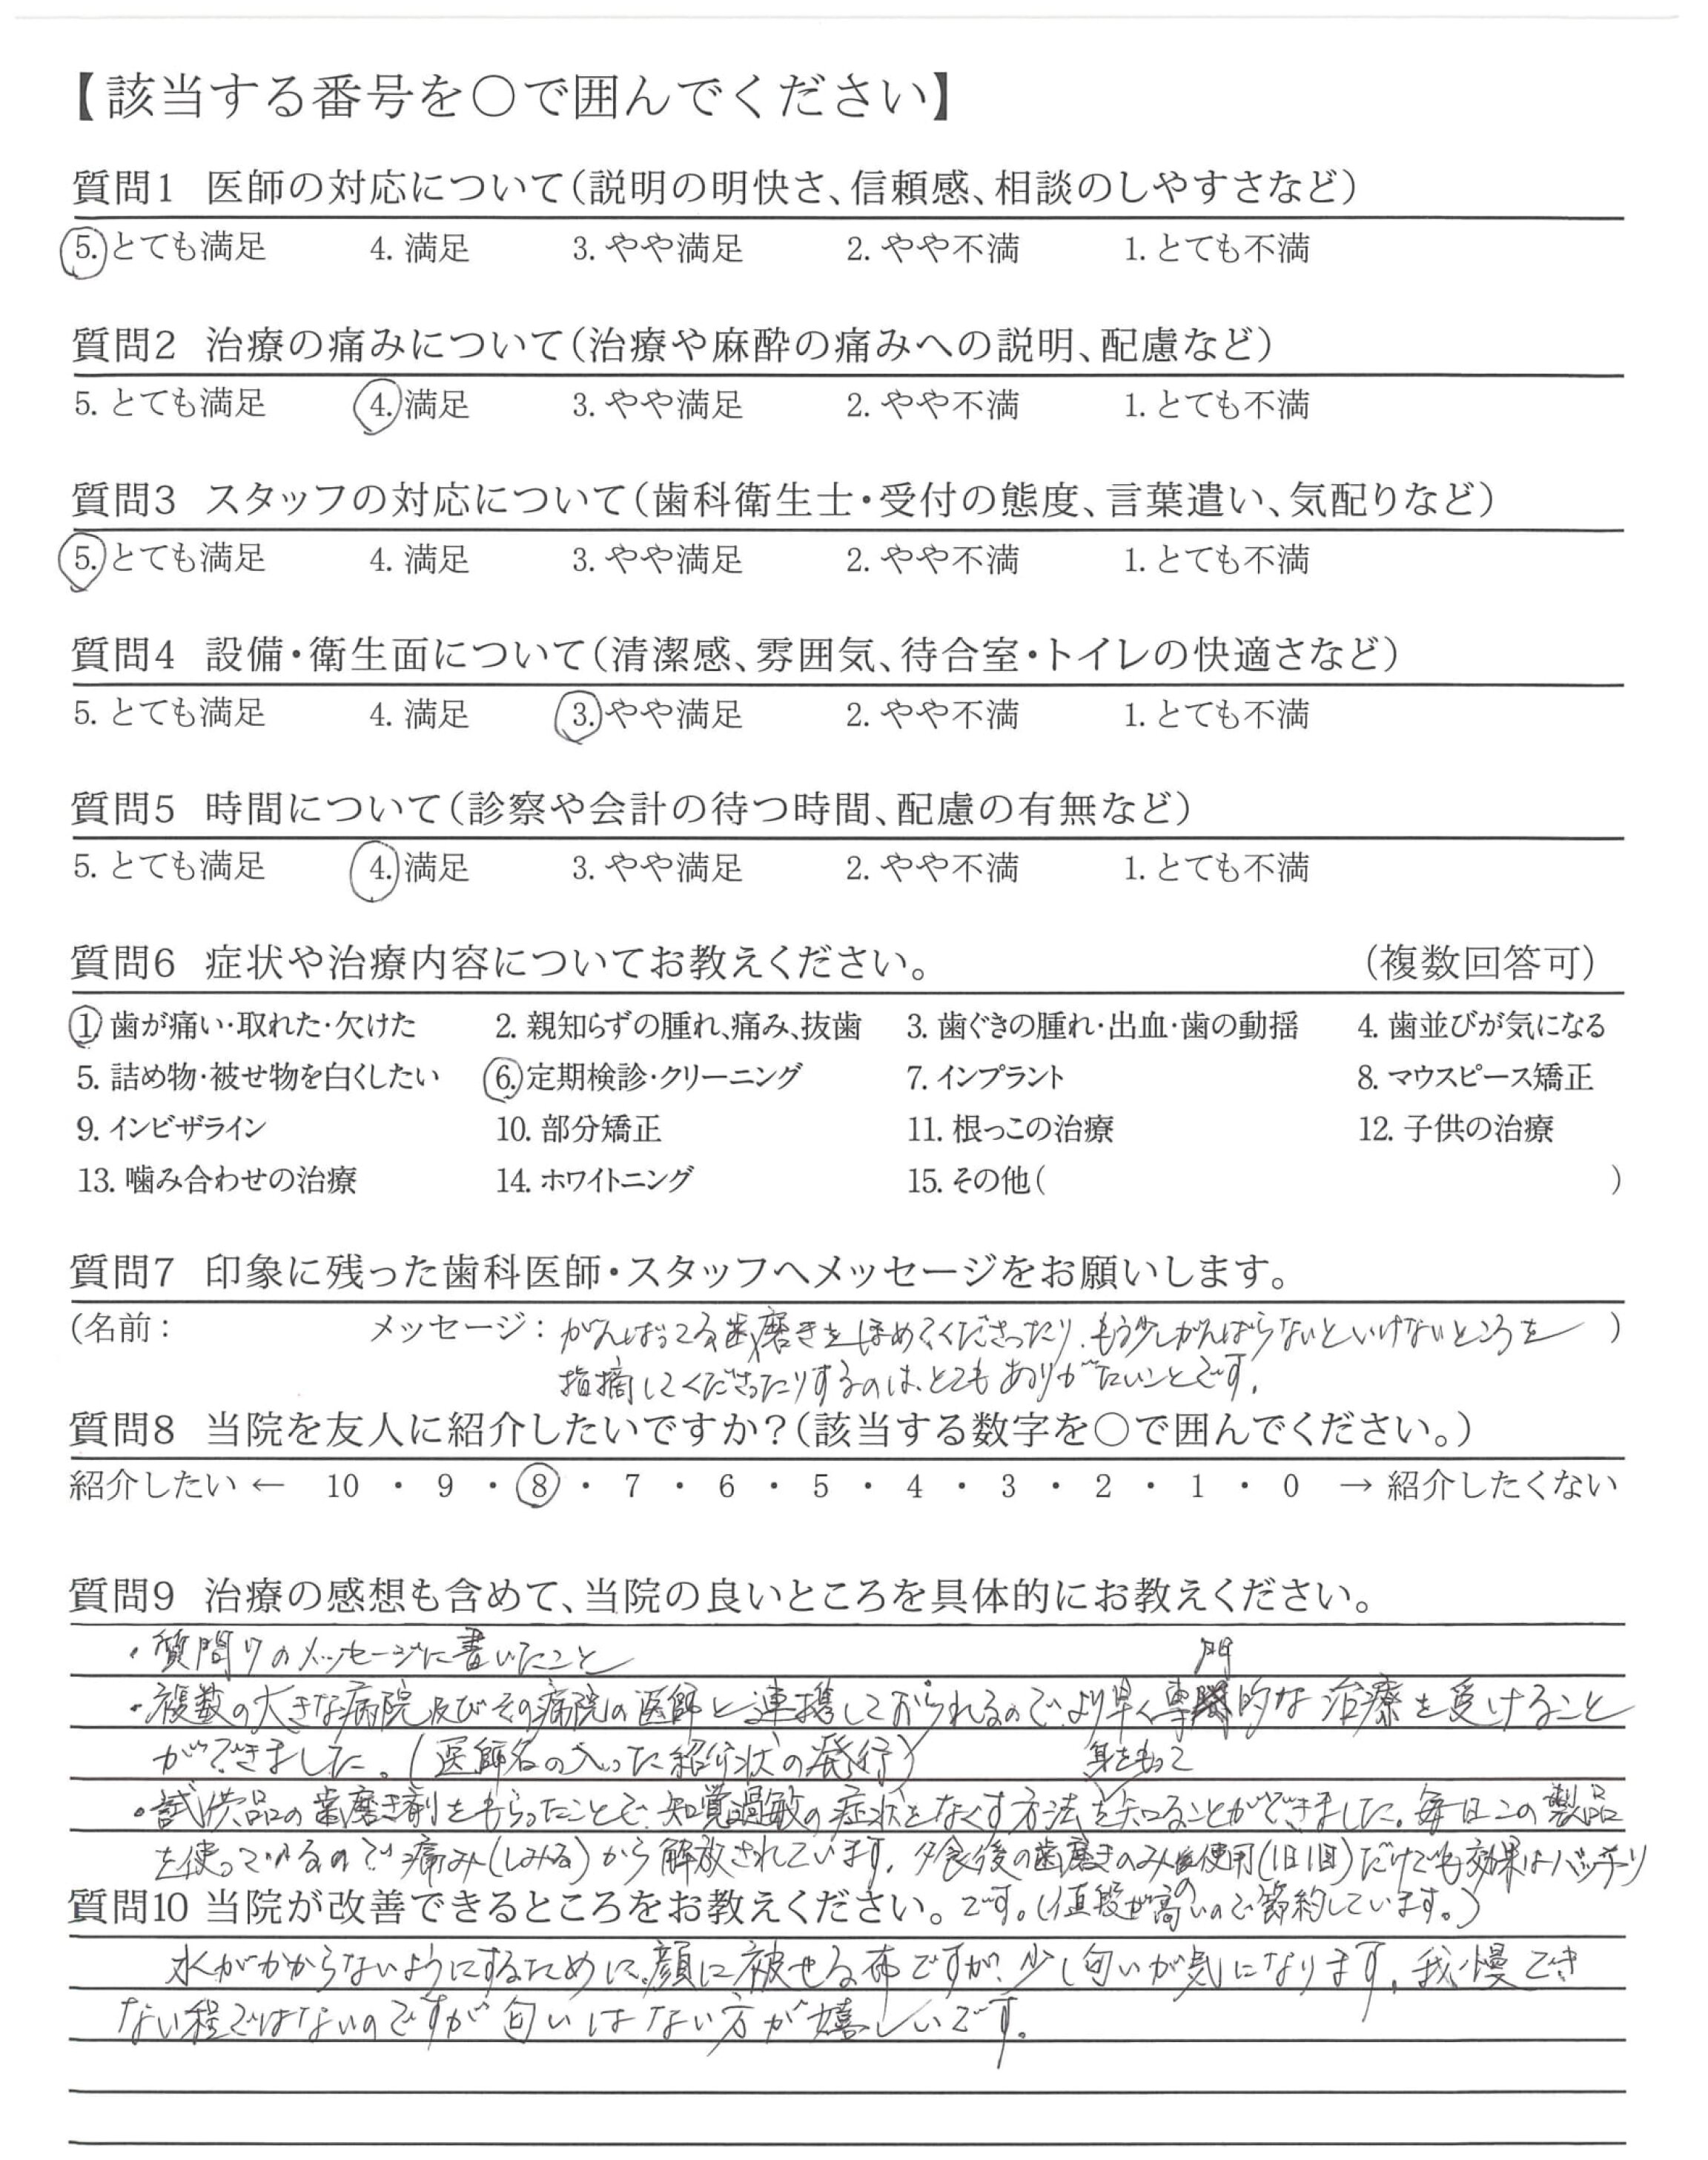 【該当する番号を○で囲んでください】
質問1 医師の対応について(説明の明快さ、信頼感、相談のしやすさなど)
5. とても満足 4. 満足 3. やや満足 2. やや不満 1. とても不満
質問2 治療の痛みについて(治療や麻酔の痛みへの説明、配慮など)
5. とても満足 4. 満足 3. やや満足 2. やや不満 1. とても不満
質問3 スタッフの対応について(歯科衛生士・受付の態度、言葉遣い、気配りなど)
5. とても満足 4. 満足 3. やや満足 2. やや不満 1. とても不満
質問4 設備・衛生面について(清潔感、雰囲気、待合室・トイレの快適さなど)
5. とても満足 4. 満足 3. やや満足 2. やや不満 1. とても不満
質問5 時間について(診察や会計の待つ時間、配慮の有無など)
5. とても満足 4. 満足 3. やや満足 2. やや不満 1. とても不満
質問6 症状や治療内容についてお教えください。 (複数回答可)
1. 歯が痛い・取れた・欠けた 2. 親知らずの腫れ、痛み、抜歯 3. 歯ぐきの腫れ・出血・歯の動揺 4. 歯並びが気になる
5. 詰め物・被せ物を白くしたい 6. 定期検診・クリーニング 7. インプラント 8. マウスピース矯正
9. インビザライン 10. 部分矯正 11. 根っこの治療 12. 子供の治療
13. 噛み合わせの治療 14. ホワイトニング 15. その他( )
質問7 印象に残った歯科医師・スタッフへメッセージをお願いします。
(名前: メッセージ: がんばってる歯磨きをほめてくださったり、もう少しがんばらないといけないところを )
指摘してくださったりするのは、とてもありがたいことです。
質問8 当院を友人に紹介したいですか?(該当する数字を○で囲んでください。)
紹介したい ← 10 ・ 9 ・ 8 ・ 7 ・ 6 ・ 5 ・ 4 ・ 3 ・ 2 ・ 1 ・ 0 → 紹介したくない
質問9 治療の感想も含めて、当院の良いところを具体的にお教えください。
・質問7のメッセージに書いたこと
・複数の大きな病院及びその病院の医師と連携しておられるので、より早く専門的な治療を受けること
ができました。(医師名の入った紹介状の発行) 身をもって
・試供品の歯磨き剤をもらったことで、知覚過敏の症状をなくす方法を知ることができました。毎日この製品
を使っているので痛み(しみる)から解放されています。夕食後の歯磨きのみの使用(1日1回)だけでも効果はバッチリ
質問10 当院が改善できるところをお教えください。です。(値段が高いので節約しています。)
水がかからないようにするために、顔に被せる布ですが、少し匂いが気になります。我慢でき
ない程ではないのですが匂いはない方が嬉しいです。